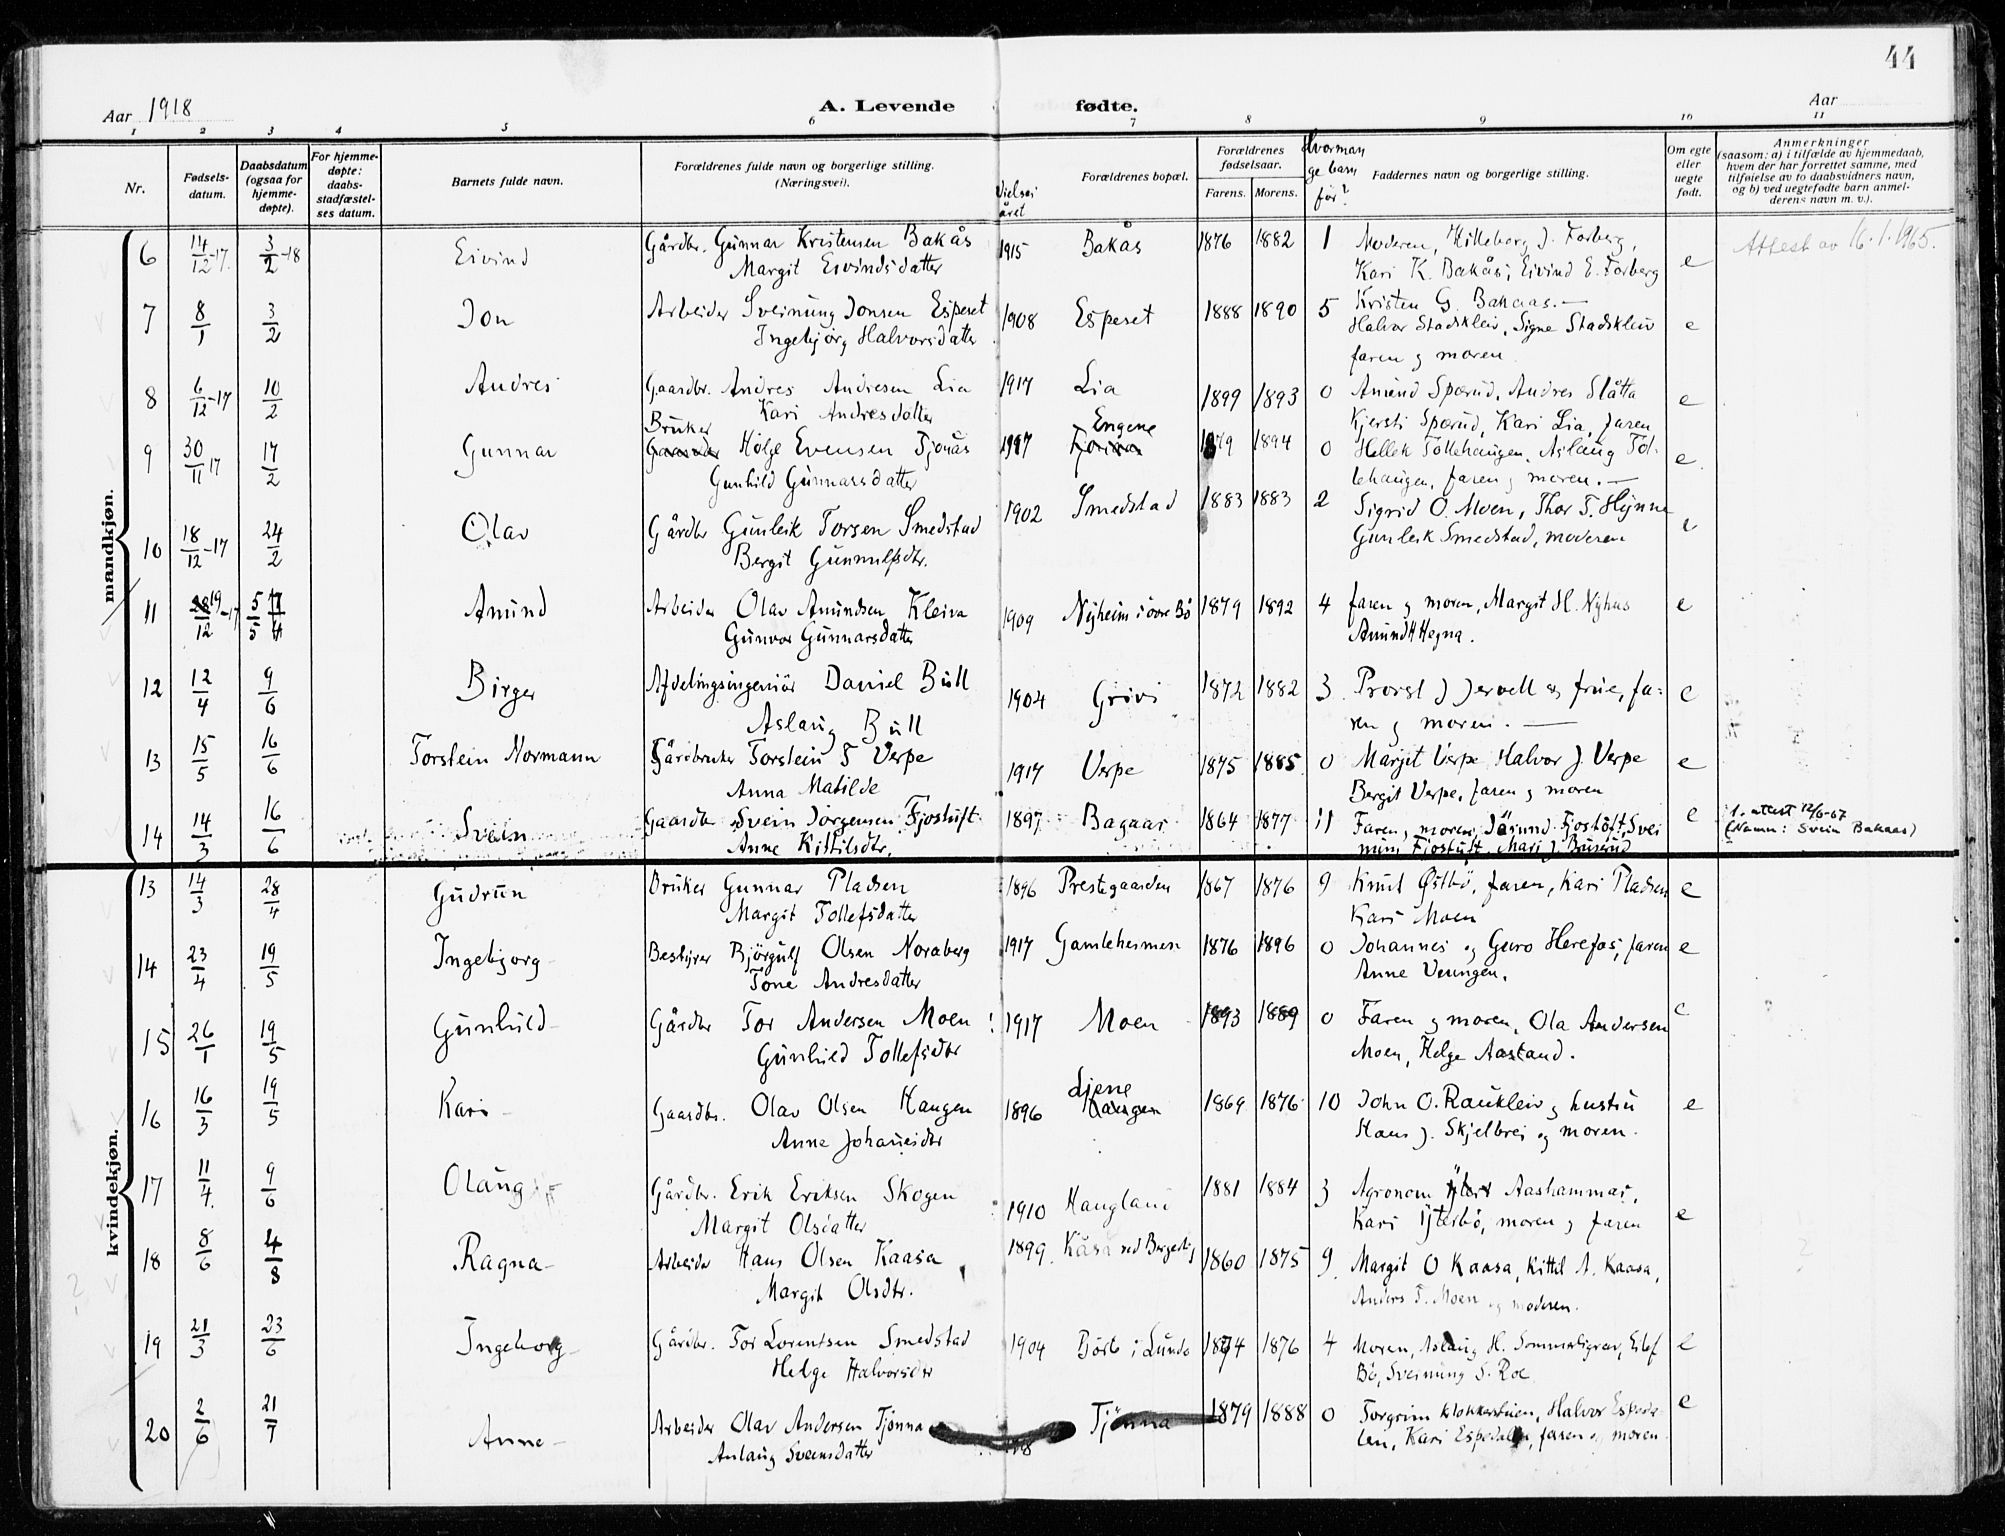 44
Aar 1918
A. Levende fødte.
Aar
1 2 3 4 5 6 7 8 9 10 11
Nr.
Fødsels-
datum.
Daabsdatum
(ogsaa for
hjemme-
døpte).
For hjemme-
døpte:
daabs-
stadfæstel-
ses datum.
Barnets fulde navn.
Forældrenes fulde navn og borgerlige stilling.
(Næringsvei).
Vielses
året
Forældrenes bopæl.
Forældrenes
fødselsaar.
Farens. Morens.
Hvorman
ge barn
før?
Faddernes navn og borgerlige stilling.
Om egte
eller
uegte
født.
Anmerkninger
(saasom: a) i tilfælde av hjemmedaab,
hvem der har forrettet samme, med
tilføielse av to daabsvidners navn,
og b) ved uegtefødte barn anmel-
derens navn m. v.).
mandkjøn.
6 14/12-17 3/2-18 Eivind Gårdbr. Gunnar Kristensen Bakås 1915 Bakås 1876 1882 1 Moderen, Hilleborg J. Forberg, e Attest av 16.1.1965.
Margit Eivindsdatter Kari K. Bakås, Eivind E. Forberg
7 8/1 3/2 Jon Arbeider Sveinung Jonsen Esperet 1908 Esperet 1888 1890 5 Kristen G. Bakaas.— e
Ingebjørg Halvorsdatter Halvor Stadskleiv, Signe Stadskleiv
faren og moren.
8 6/12-17 10/2 Andres Gaardbr. Andres Andresen Lia 1917 Lia 1899 1893 0 Amund Sperud, Andres Slåtta e
Kari Andresdatter Kjersti Sperud, Kari Lia, faren
9 30/11 17 17/2 Gunnar Bruker Holge Evensen Tjønås 1917 Engene 1879 1894 0 Hellek Tollehaugen, Aslaug Tol- e
Gunhild Gunnarsdatter lehaugen, faren og moren.—
10 18/12-17 24/2 Olav Gårdbr Gunleik Torsen Smedstad 1902 Smedstad 1883 1883 2 Sigrid O. Moen, Thor T. Hynne e
Bergit Gunnulfsdtr. Gunleik Smedstad, moderen
11 19/12-17 5/5 Amund Arbeider Olav Amundsen Kleiva 1909 Nyheim i øvre Bø 1879 1892 4 faren og moren, Margit H. Nyhus e
Gunvor Gunnarsdatter Amund H Hegna.
12 12/4 9/6 Birger Afdelingsingeniør Daniel Bull 1904 Grivi 1872 1882 3 Provst J Jervell og frue, fa- e
Aslaug Bull ren og moren.—
13 15/5 16/6 Torstein Normann Gårdbruker Torstein T Verpe 1917 Verpe 1875 1885 0 Margit Verpe Halvor J. Verpe e
Anna Matilde Bergit Verpe, faren og moren
14 14/3 16/6 Svein Gaardbr Svein Jørgensen Fjostuft 1897 Bagaas 1864 1877 11 Faren og moren, Jørund Fjostuft, Svei e 1. attest 12/6-67
Anne Kittilsdtr. nung Fjostuft, Mari J. (Namn: Svein Bakaas)
kvindekjøn.
13 14/3 28/4 Gudrun Bruker Gunnar Pladsen 1896 Prestegaarden 1867 1876 9 Knut Østbø, faren, Kari Pladsen e
Margit Tollefsdatter Kari Moen
14 23/4 19/5 Ingebjorg Bestyrer Bjørgulf Olsen Noraberg 1917 Gamlehesmen 1876 1896 0 Johannes og Guro Herefos, faren e
Tone Andresdatter Anne Verungen.
15 26/1 19/5 Gunhild Gårdbr Tor Andersen Moen 1917 Moen 1893 1889 0 Faren og moren, Ola Andersen e
Gunhild Tollefsdtr Moen, Helge Aasland.
16 16/3 19/5 Kari Gaardbr. Olav Olsen Haugen 1896 Liene Haugen 1869 1876 10 John O.Raukleiv og hustru e
Anne Johanesdtr Hans J. Skjelbrei og moren.
17 11/4 9/6 Olaug Gårdbr. Erik Eriksen Skogen 1910 Haugland 1881 1884 3 Agronom Aashammar, e
Margit Olsdatter Kari Ytterbø, moren og faren
18 8/6 4/8 Ragna Arbeider Hans Olsen Kaasa 1899 Kåsa ved 1860 1875 9 Margit O Kaasa, Kittil A. Kaasa,
Margit Olsdtr. Anders T. Moen og moderen.
19 21/3 23/6 Ingeborg Gårdbr. Tor Lorentsen Smedstad 1904 Børte i Lunde 1874 1876 4 Moren, Aslaug H. e
Helge Halvorsdtr Bø, Sveinung S. Roe
20 2/6 21/7 Anne Arbeider Olav Andersen Tjønna 1918 Tjønna 1879 1888 0 Torgrim Klokkerstuen, Halvor Espeda- e
Aslaug Sveinsdatter len, Kari Espedalen, faren og moren